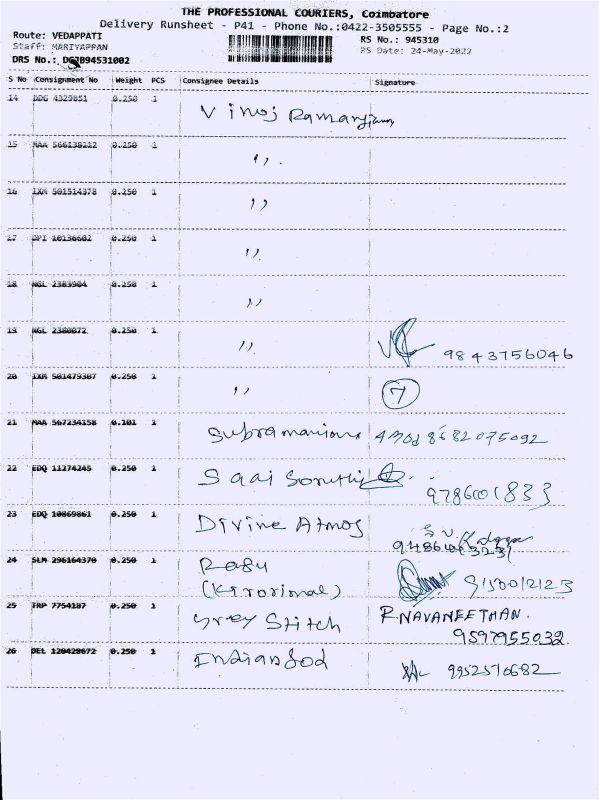 THE PROFESSIONAL COURIERS, Coimbatore
Delivery Runsheet - P41 - Phone No.:0422-3505555 - Page No.:2
Route: VEDAPPATI
RS No.: 945310
Staff: MARIYAPPAN
RS Date: 24-May-2022
DRS No.:
S No Consignment No Weight PCS Consignee Details Signature
14 DDG 4329851 0.250 1 Vinoj Ramanjam
15 MAA 566138212 0.250 1 ,,
16 IXM 501514378 0.250 1 ,,
17 DPI 10136602 0.250 1 ,,
18 NGL 2383904 0.250 1 ,,
19 NGL 2380872 0.250 1 ,, 9843756046
20 IXM 501479307 0.250 1 ,, 7
21 MAA 567234158 0.101 1 8682075092
22 EDQ 11274245 0.250 1 Saai
23 EDQ 10869861 0.250 1 Divine Atmos
24 SLM 296164370 0.250 1 Ragu 9150012123
25 TRP 7754187 0.250 1 Grey Stitch R.NAVANEETHAN.
9597955032
26 DEL 120428672 0.250 1 9952510682